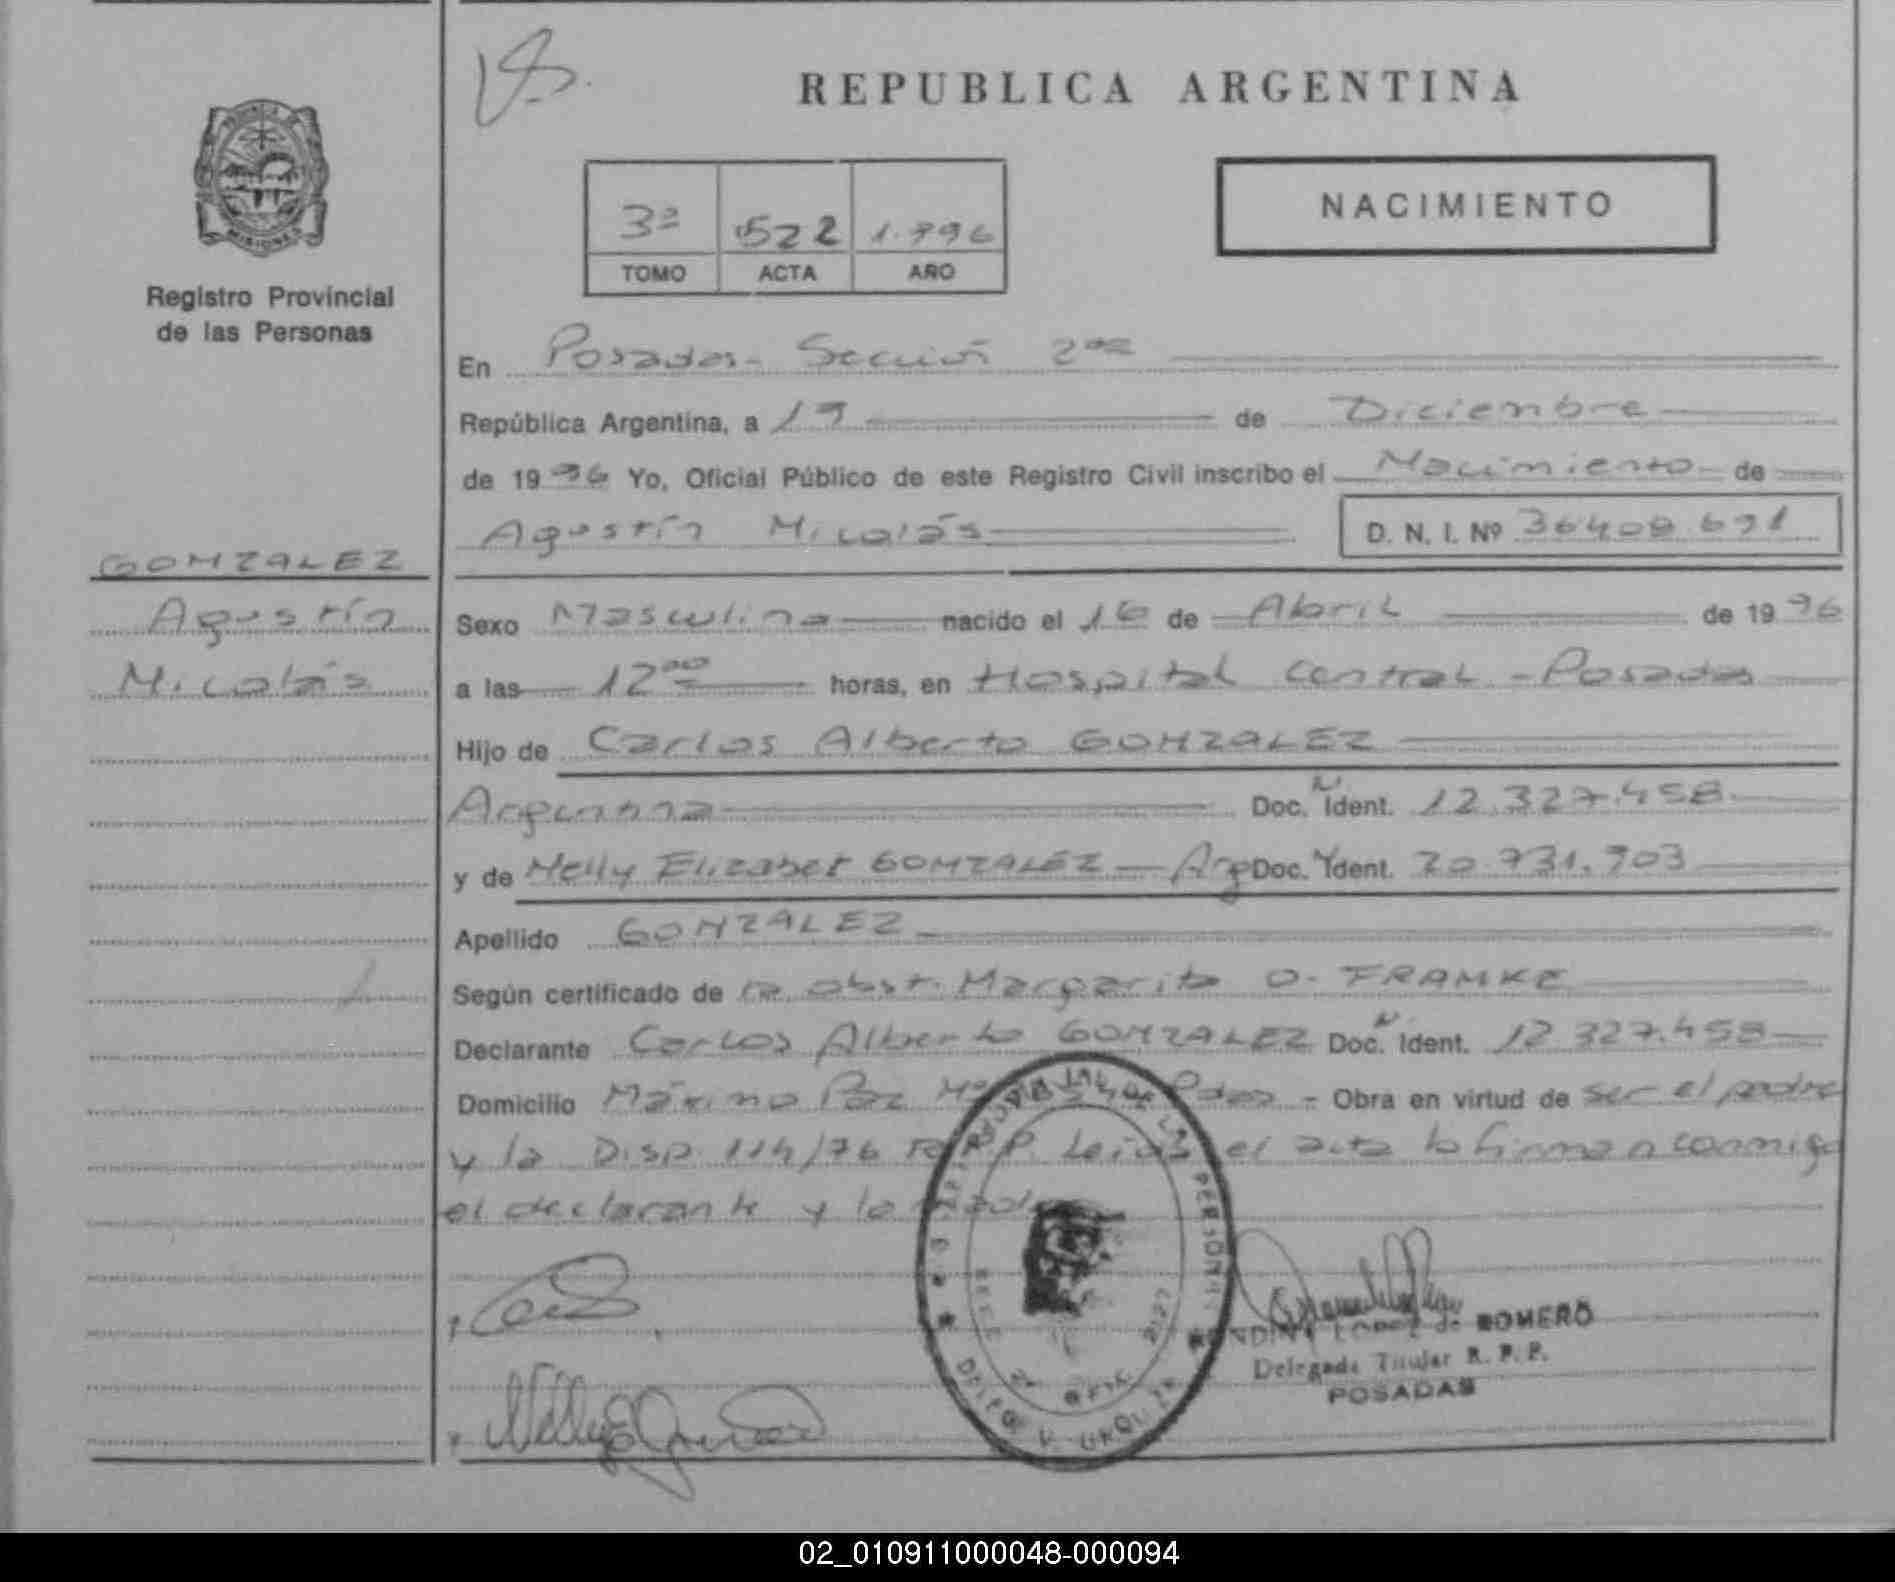 REPUBLICA ARGENTINA
MISIONES
Registro Provincial
de las Personas
3ª 522 1.996
TOMO ACTA AÑO
NACIMIENTO
En Posadas - Sección 2da
República Argentina, a 19 de Diciembre
de 1996 Yo, Oficial Público de este Registro Civil inscribo el Nacimiento de
Agustín Nicolás D. N. I. Nº 36408.691
GONZALEZ
Agustín
Nicolás
Sexo Masculino nacido el 16 de Abril de 1996
a las 12 00 horas, en Hospital Central - Posadas
Hijo de Carlos Alberto GONZALEZ
Argentina Doc. Ident. 12.327.458
y de Nelly Elizabet GONZALEZ - Arg Doc. Ident. 20.731.903
Apellido GONZALEZ
Según certificado de la obst. Margarita O. FRANKE
Declarante Carlos Alberto GONZALEZ Doc. Ident. 12.327.458
Domicilio Máximo Paz Nº Pdas - Obra en virtud de ser el padre
y la Disp. 114/76 Leída el acta la firman conmigo
el declarante y la
LOPEZ de ROMERO
Delegada Titular R. P. P.
POSADAS
02_010911000048-000094